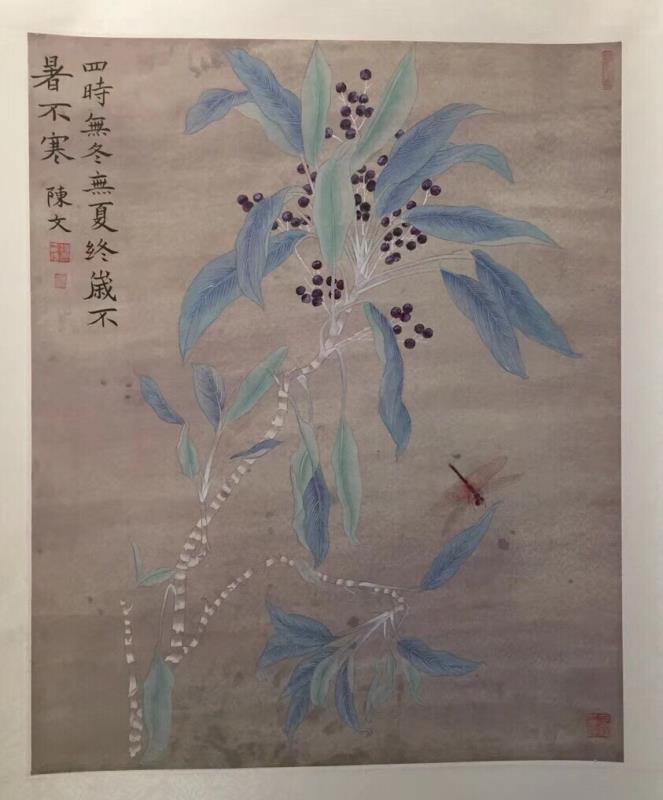 四時無冬無夏終歲不
暑不寒
陳文